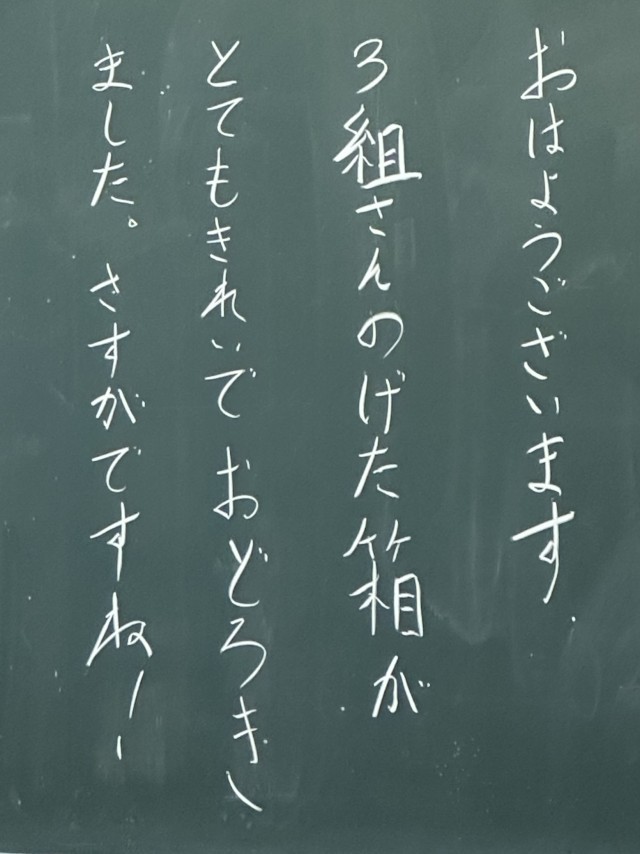 おはようございます.
3組さんのげた箱が
とてもきれいで おどろきし
ました。さすがですね!